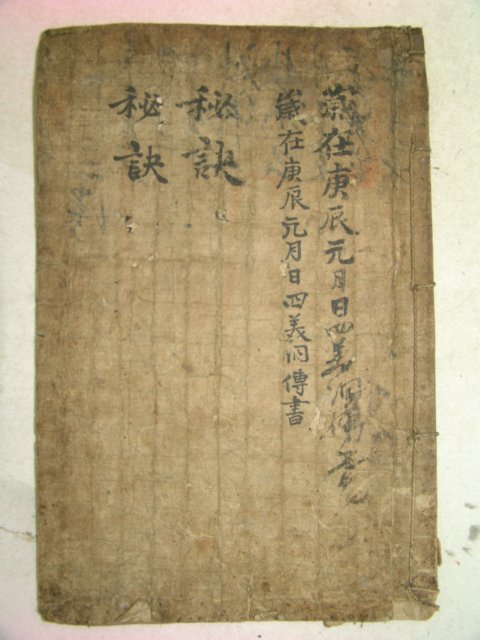 歲在庚辰元月日四義洞傳書
歲在庚辰元月日四義洞傳書
秘訣
秘訣